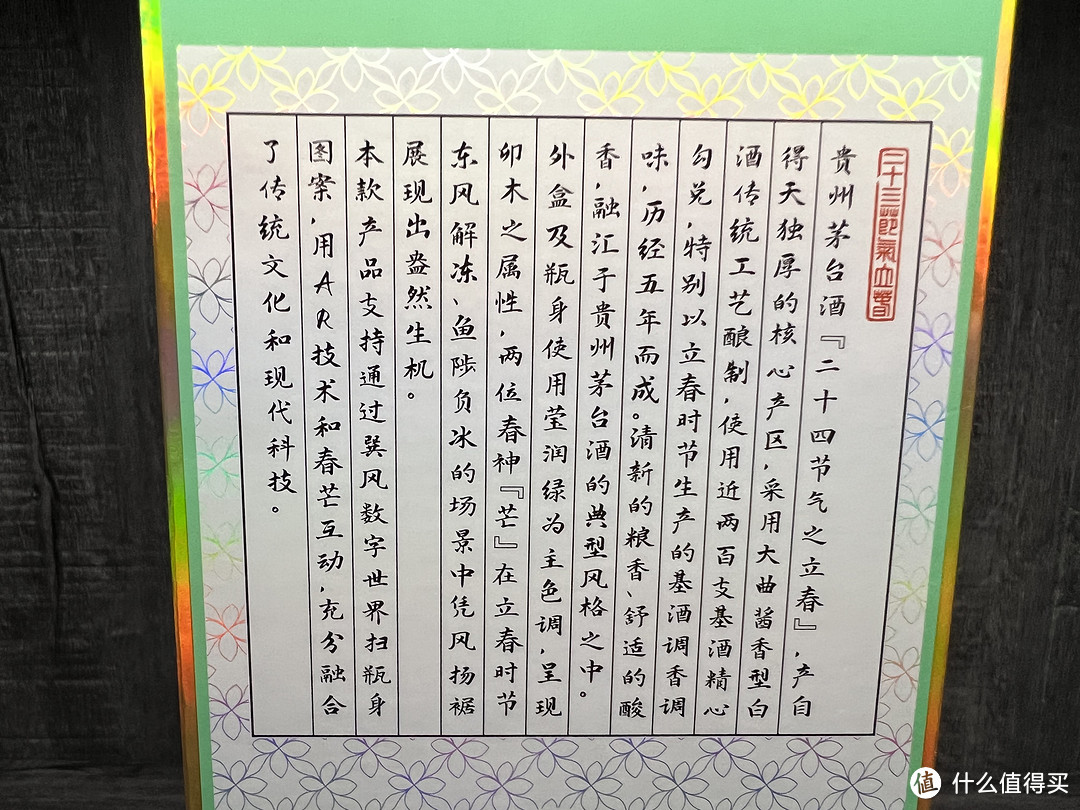 二十亖節氣立春
贵州茅台酒『二十四节气之立春』,产自
得天独厚的核心产区,采用大曲酱香型白
酒传统工艺酿制,使用近两百支基酒精心
勾兑,特别以立春时节生产的基酒调香调
味,历经五年而成。清新的粮香、舒适的酸
香,融汇于贵州茅台酒的典型风格之中。
外盒及瓶身使用莹润绿为主色调,呈现
卯木之属性,两位春神『芒』在立春时节
东风解冻、鱼陟负冰的场景中凭风扬裾
展现出盎然生机。
本款产品支持通过巽风数字世界扫瓶身
图案,用AR技术和春芒互动,充分融合
了传统文化和现代科技。
值 什么值得买